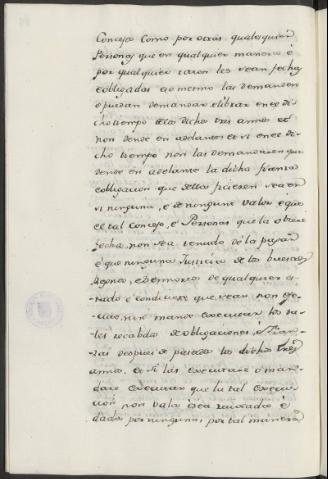 Concejo como por otras qualesquier
Personas que en qualquier manera é
por qualquier razon les sean fechas
é obligadas ao menno las demanden
o puedan demandar é librar en el di-
cho tiempo de los dichos tres annos et
non dende en adelante et si en el di-
cho tiempo non las demandaren que
dende en adelante la dicha fianza é
obligacion que dellas ficiesen sea en
si ninguna, é de ninguno valor é que
el tal Concejo, é Personas que la obieren
fecha non sea tenudo de la pagar
é que ninguna Justicia de los buestros
Regnos, é Sennorios de qualquier es-
tado é condicion que sean non ege-
cute, nin mande executar los ta-
les recabdos é obligaciones, é Fian-
zas despues de pasados los dichos tres
annos, et si las executare o man-
dare executar que la tal execu-
cion non vala é sea revocada é
dada por ninguna, por tal manera